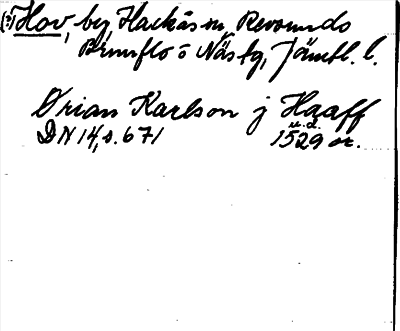 (?) Hov, by, Hackås sn, Revsunds
Brunflo o Näs tg, Jämtl. l.
Ørian Karlson j Haaff
u.d.
DN 14, s. 671 1529 or.